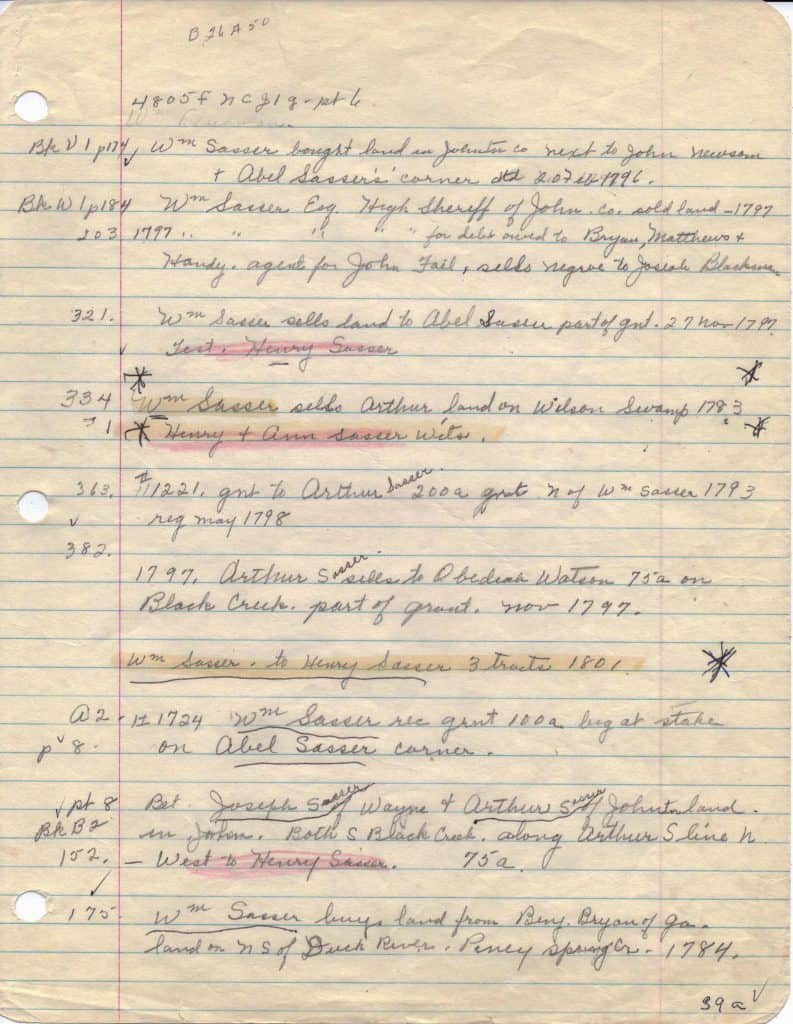 B 26 A 50
4805F NC J1g - pt 6
Bk V 1 p174 Wm Sasser bought land in Johnston co next to John Newsom
+ Abel Sasser's corner dtd 1796.
Bk W 1 p184 Wm Sasser Esq. High Sheriff of John. co. sold land - 1797
203 1797 " " " " " for debt owed to Bryan, Matthews +
Handy. agent for John Fail, sells negroe to Josiah Blackman
321. Wm Sasser sells land to Abel Sasser part of gnt. 27 Nov 1797
Test. Henry Sasser
334 Wm Sasser sells Arthur land on Wilson Swamp 1783
Henry + Ann Sasser Wits.
363. #1221. gnt to Arthur Sasser 200a gnt N of Wm Sasser 1793
reg may 1798
382.
1797. Arthur Sasser sells to Obediah Watson 75a on
Black Creek. part of grant. Nov 1797.
Wm Sasser. to Henry Sasser 3 tracts 1801.
A2 - # 1724 Wm Sasser rec grnt 100a beg at stake
p 8. on Abel Sasser corner.
pt 8 Bet Joseph Sasser of Wayne + Arthur Sasser of Johnston land.
Bk B2 in John. Both S Black Creek. along Arthur S line N.
152. - West to Henry Sasser. 75a.
175. Wm Sasser buys land from Benj. Bryan of Ga.
land on N S of Duck River. Piney Spring Cr. - 1784.
39a